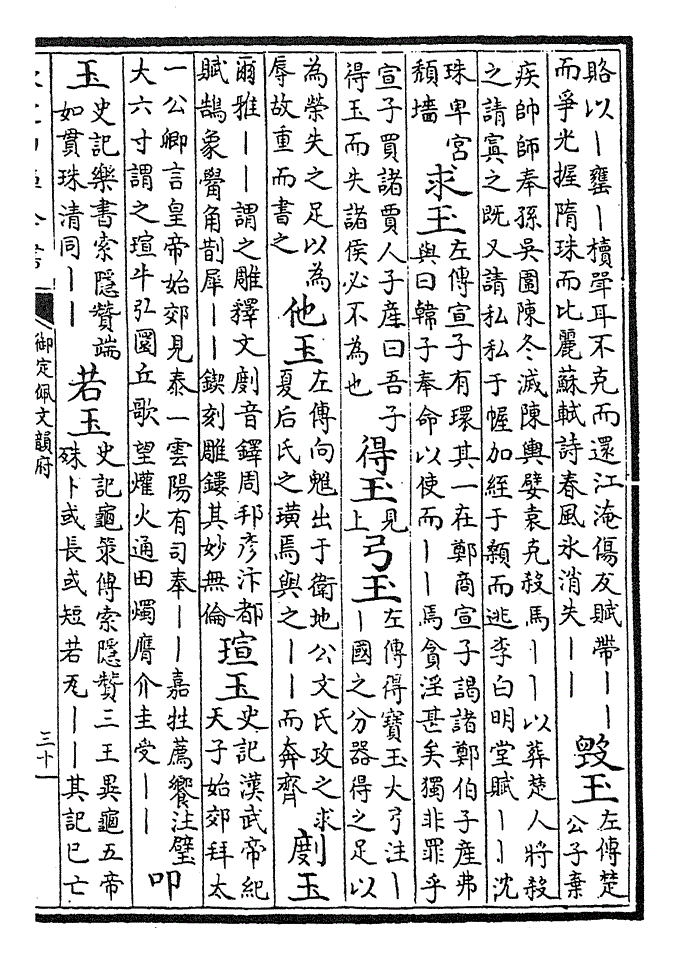 賂以〡罋〡櫝斝耳不克而還江淹傷友賦帶〡〡
而爭光握隋珠而比麗蘇軾詩春風氷消失〡〡
毀玉
左傳楚
公子棄
疾帥師奉孫吳圍陳冬滅陳輿嬖袁克殺馬〡〡以葬楚人將殺
之請寘之既又請私私于幄加絰于顙而逃李白明堂賦〡〡沈
珠卑宮
頹墻
求玉
左傳宣子有環其一在鄭商宣子謁諸鄭伯子產弗
與曰韓子奉命以使而〡〡焉貪淫甚矣獨非罪乎
宣子買諸賈人子產曰吾子
得玉而失諸侯必不為也
得玉
見
上
弓玉
左傳得寶玉大弓注〡
〡國之分器得之足以
為榮失之足以為
辱故重而書之
他玉
左傳向魋出于衛地公文氏攻之求
夏后氏之璜焉與之〡〡而奔齊
剫玉
爾雅〡〡謂之雕釋文剫音鐸周邦彥汴都
賦鵠象觷角剒犀〡〡鍥刻雕鏤其妙無倫
瑄玉
史記漢武帝紀
天子始郊拜太
一公卿言皇帝始郊見泰一雲陽有司奉〡〡嘉牲薦饗注璧
大六寸謂之瑄牛弘圜丘歌望爟火通田燭膺介圭受〡〡
叩
玉
史記樂書索隱贊端
如貫珠清同〡〡
若玉
史記龜策傳索隱贊三王異龜五帝
殊卜或長或短若瓦〡〡其記已亡
御定佩文韻府
三十